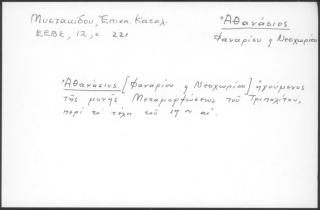 Μυστακίδου, Ἐπισκ. Καταλ.
ΕΕΒΕ, 12, σ 221
Ἀθανάσιος
Φαναρίου ἢ Νεοχωρίου
Ἀθανάσιος [Φαναρίου ἢ Νεοχωρίου] ἡγούμενος
τῆς μονῆς Μεταμορφώσεως τοῦ
περὶ τὰ τέλη τοῦ 17 αἰ.